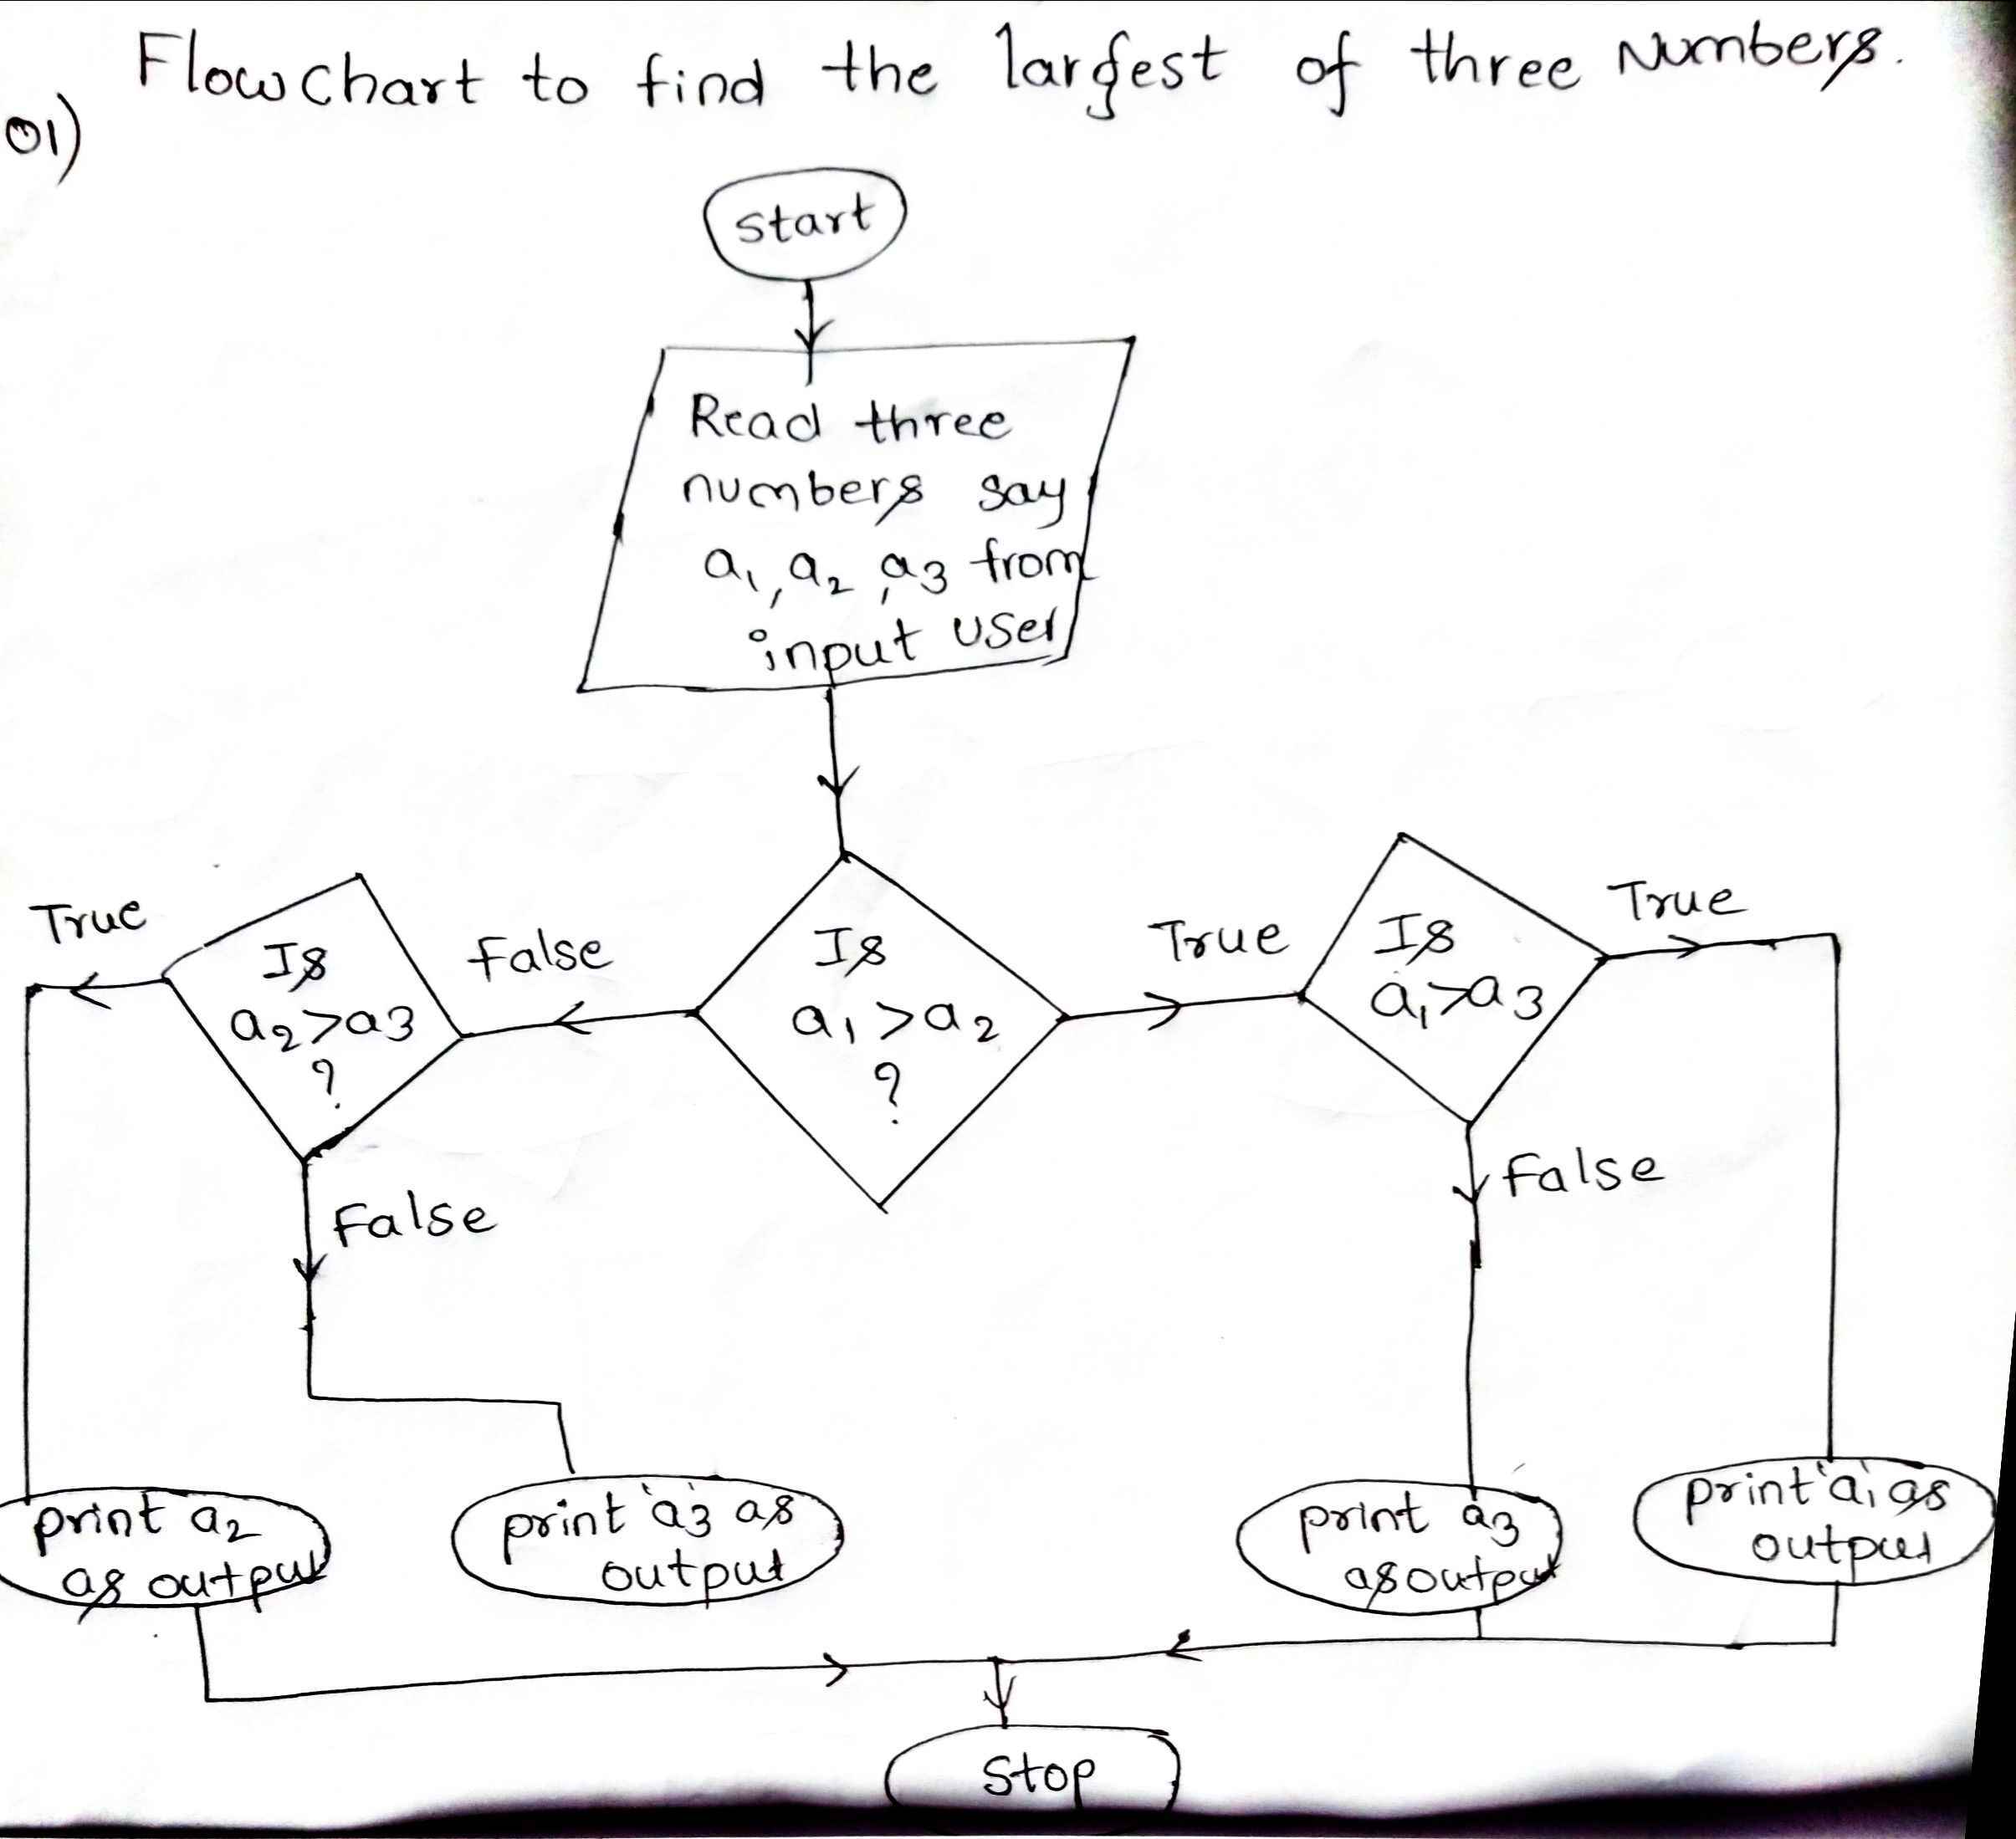 Flowchart to find the largest of three Numbers.
01)
start
Read three
numbers say
a1, a2, a3 from
input user
True
Is
a2>a3
?
False
Is
a1>a2
?
True
Is
a1>a3
True
False
False
print a2
as output
print 'a'3 as
output
print a3
as output
print 'a'1 as
output
Stop